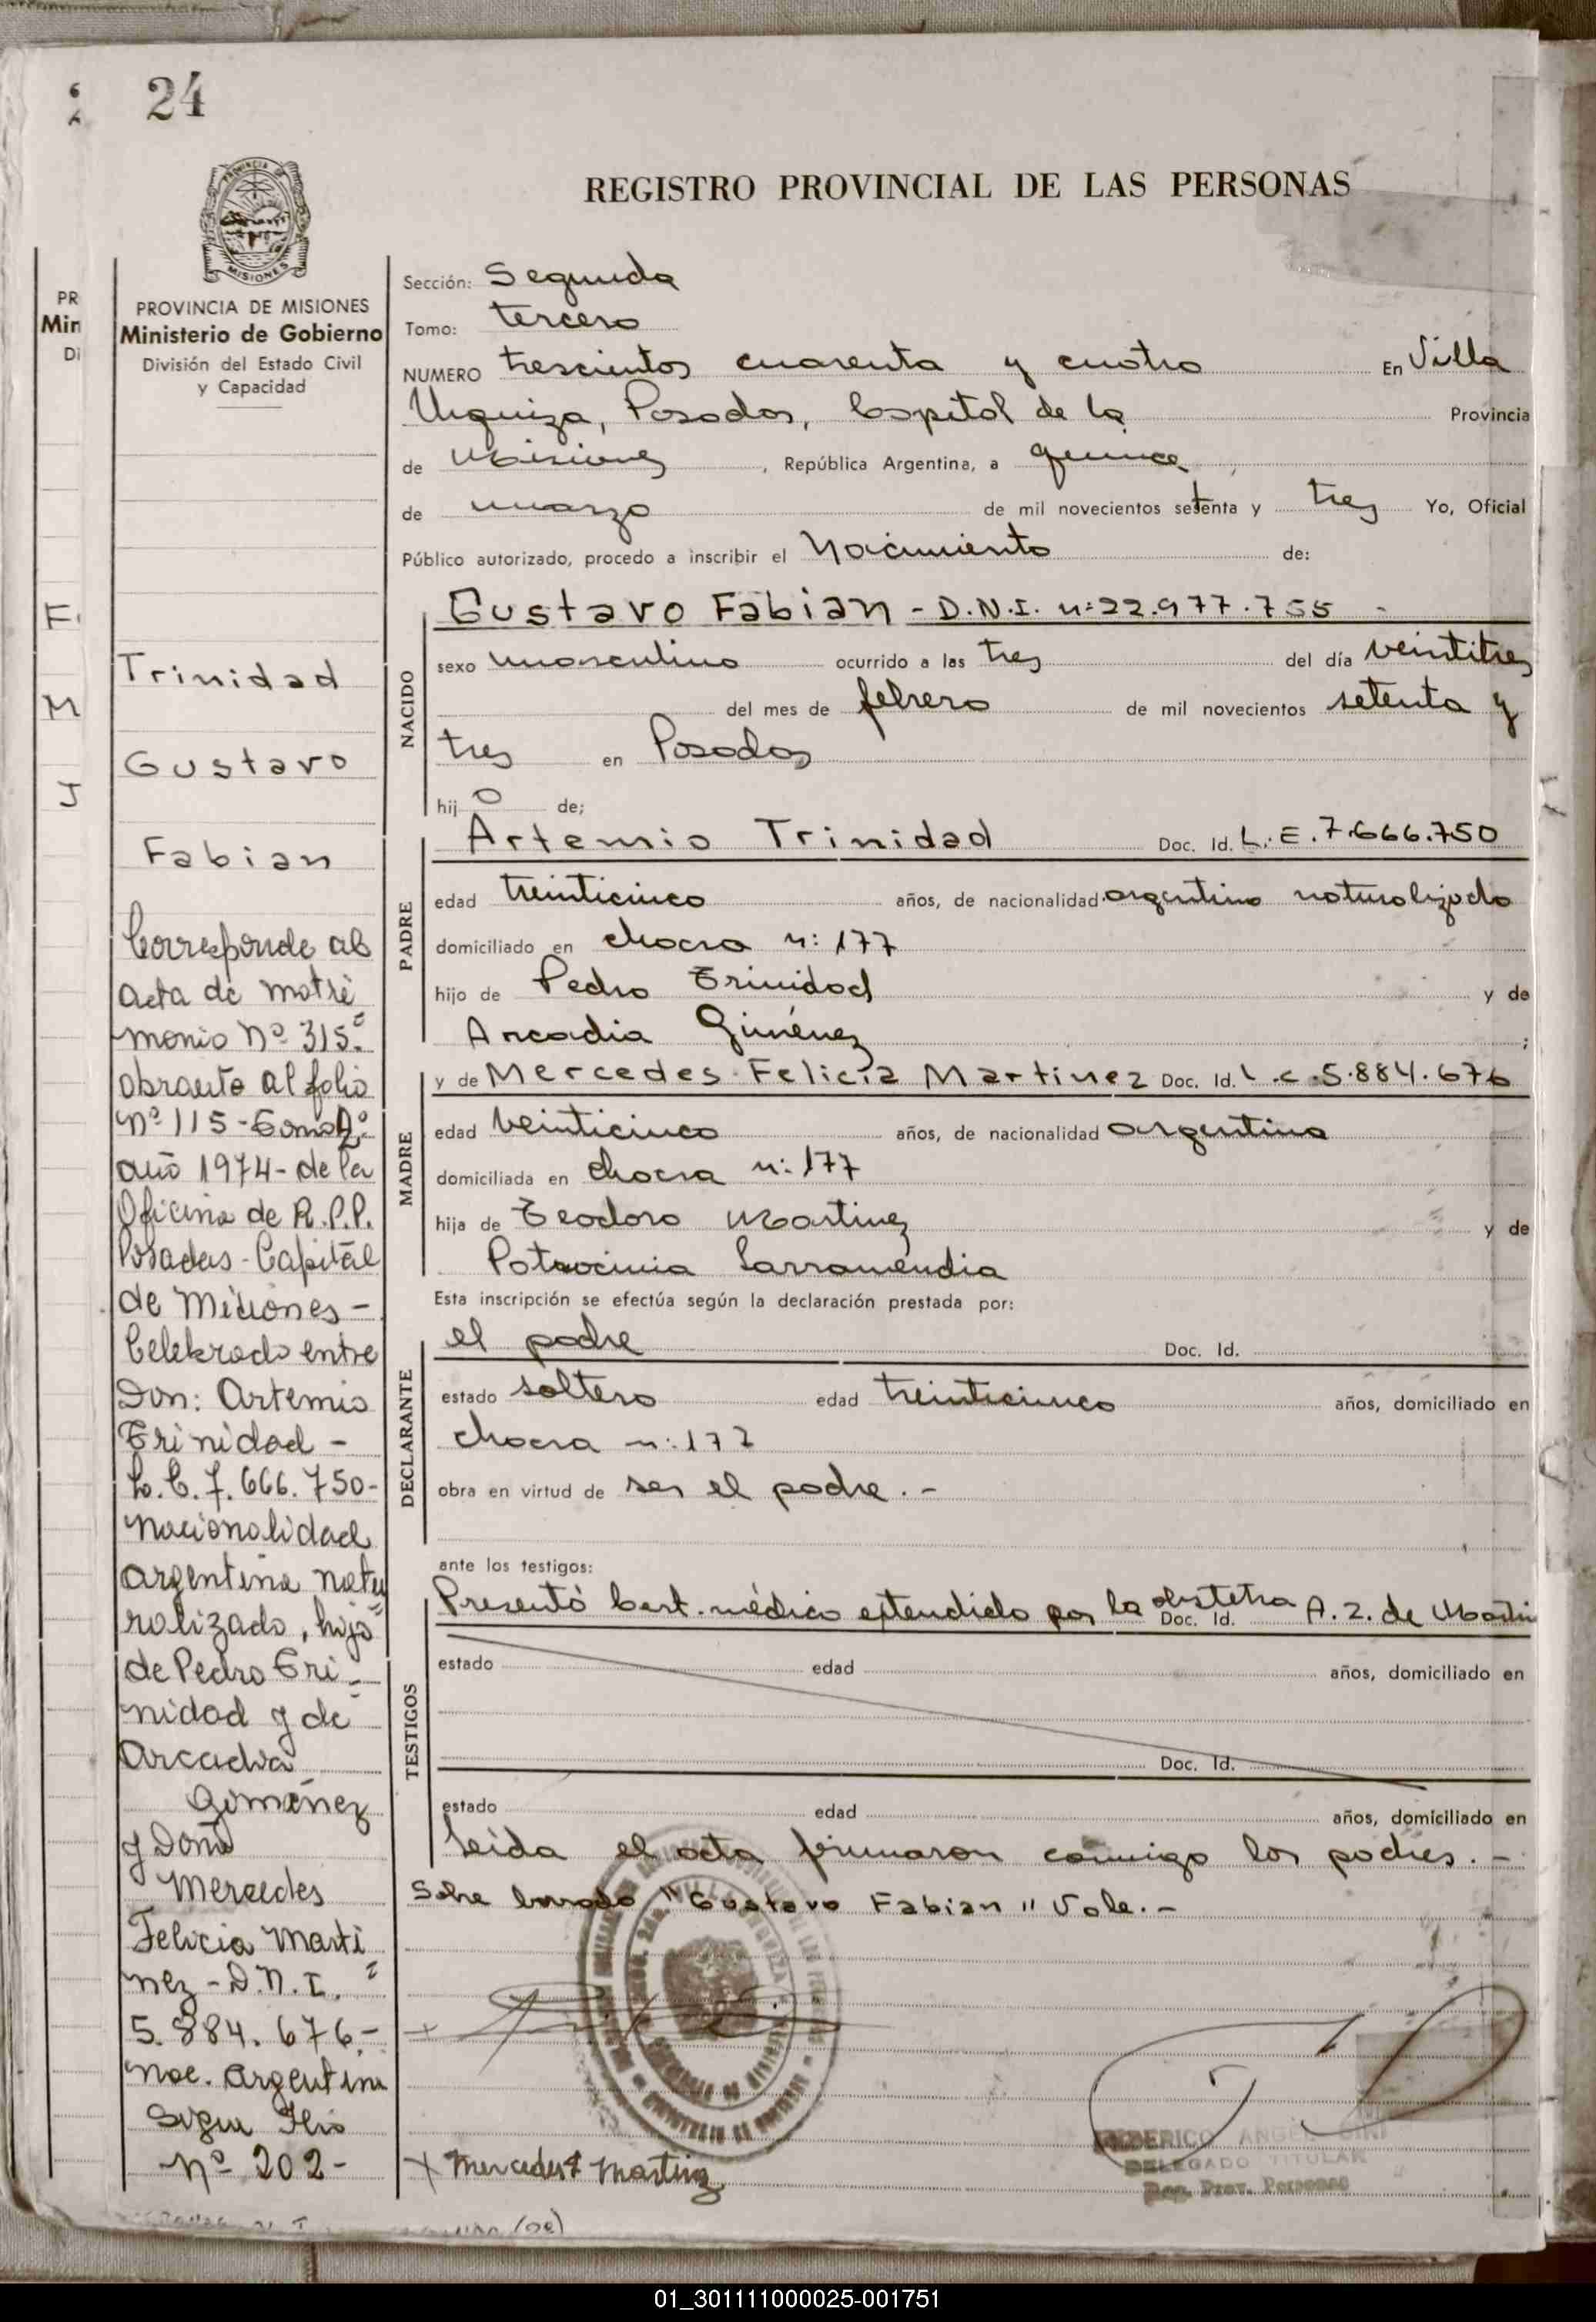 24
REGISTRO PROVINCIAL DE LAS PERSONAS
PROVINCIA DE MISIONES
Ministerio de Gobierno
División del Estado Civil
y Capacidad
Trinidad
Gustavo
Fabian
Corresponde al
acta de matri
monio Nº 315.
obrante al folio
Nº 115 - Tomo
año 1974 - de la
Oficina de R.P.P.
Posadas - Capital
de Misiones -
Celebrado entre
Don: Artemio
Trinidad -
7.666.750 -
nacionalidad
argentina natu
ralizado, hijo
de Pedro Tri
nidad y de
Arcadia
Gimenez
y Doña
Mercedes
Felicia Marti
nez - D.N.I.
5.884.676 -
Nac. Argentina
Sigue Flio
Nº 202 -
Sección: Segunda
Tomo: tercero
NUMERO trescientos cuarenta y cuatro En Villa
Urquiza, Posadas, Capital de la Provincia
de Misiones, República Argentina, a quince
de marzo de mil novecientos setenta y tres Yo, Oficial
Público autorizado, procedo a inscribir el Nacimiento de:
NACIDO
Gustavo Fabian - D.N.I. n: 22.977.755 -
sexo masculino ocurrido a las tres del día veintitres
del mes de febrero de mil novecientos setenta y
tres en Posadas
hijo de;
PADRE
Artemio Trinidad Doc. Id. L.E. 7.666.750
edad treinticinco años, de nacionalidad argentino naturalizado
domiciliado en chacra n: 177
hijo de Pedro Trinidad y de
Arcadia Giménez ;
MADRE
y de Mercedes Felicia Martinez Doc. Id. L.C. 5.884.676
edad veinticinco años, de nacionalidad argentina
domiciliada en chacra n: 177
hija de Teodoro Martinez y de
Patrocinia Larramendia
Esta inscripción se efectúa según la declaración prestada por:
DECLARANTE
el padre Doc. Id.
estado soltero edad treinticinco años, domiciliado en
chacra n: 177
obra en virtud de ser el padre. -
ante los testigos:
TESTIGOS
Presentó Cert. médico extendido por la obstetra A. Z. de Martin
Doc. Id.
estado edad años, domiciliado en
Doc. Id.
estado edad años, domiciliado en
Leida el acta firmaron conmigo los padres. -
Sobre borrado "Gustavo Fabian" Vale. -
Mercedes F Martinez
DELEGADO TITULAR
Reg. Prov. Personas
01_301111000025-001751